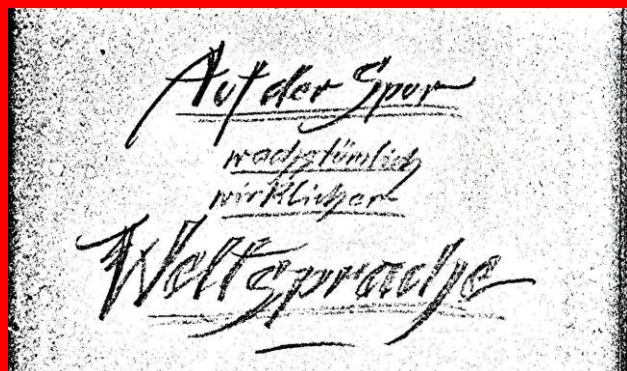 Auf der Spur
wachstümlich
wirklicher
Weltsprache